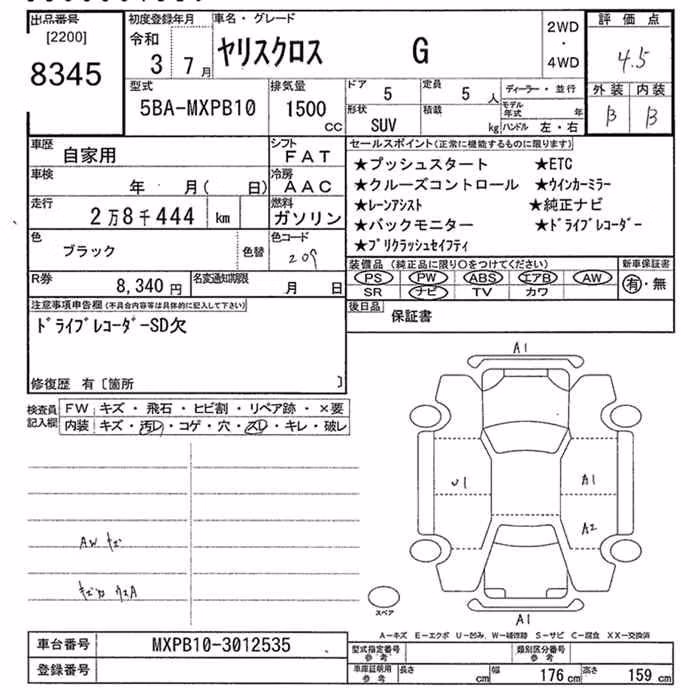 出品番号 初度登録年月 車名・グレード 評価点
[2200] 令和 ヤリスクロス G 2WD
8345 3 7月 ・ 4.5
4WD
型式 排気量 ドア 5 定員 5人 ディーラー・並行 外装 内装
5BA-MXPB10 1500 モデル年式 年 B B
CC 形状 SUV 積載 kg ハンドル 左・右
車歴 自家用 シフト FAT セールスポイント(正常に機能するものに限ります)
★プッシュスタート ★ETC
車検 年 月( 日) 冷房 AAC ★クルーズコントロール ★ウインカーミラー
走行 2万8千444 km 燃料 ガソリン ★レーンアシスト ★純正ナビ
★バックモニター ★ドライブレコーダー
色 ブラック 色替 色コード 209 ★プリクラッシュセイフティ
R券 8,340円 名変通知期限 月 日 装備品(純正品に限り○をつけてください) 新車保証書
PS PW ABS エアB AW 有・無
SR ナビ TV カワ
注意事項申告欄(不具合内容等は具体的に記入して下さい) 後日品 保証書
ドライブレコーダーSD欠
修復歴 有〔箇所 〕
検査員記入欄 FW キズ・飛石・ヒビ割・リペア跡・×要
内装 キズ・汚レ・コゲ・穴・スレ・キレ・破レ
A1
U1 A1
A2
AW キズ
スペア
A1
A-キズ E-エクボ U-凹み W-補修跡 S-サビ C-腐食 XX-交換済
車台番号 MXPB10-3012535 型式指定番号 参考 類別区分番号 参考
登録番号 車庫証明用 参考 長さ cm 幅 176cm 高さ 159cm